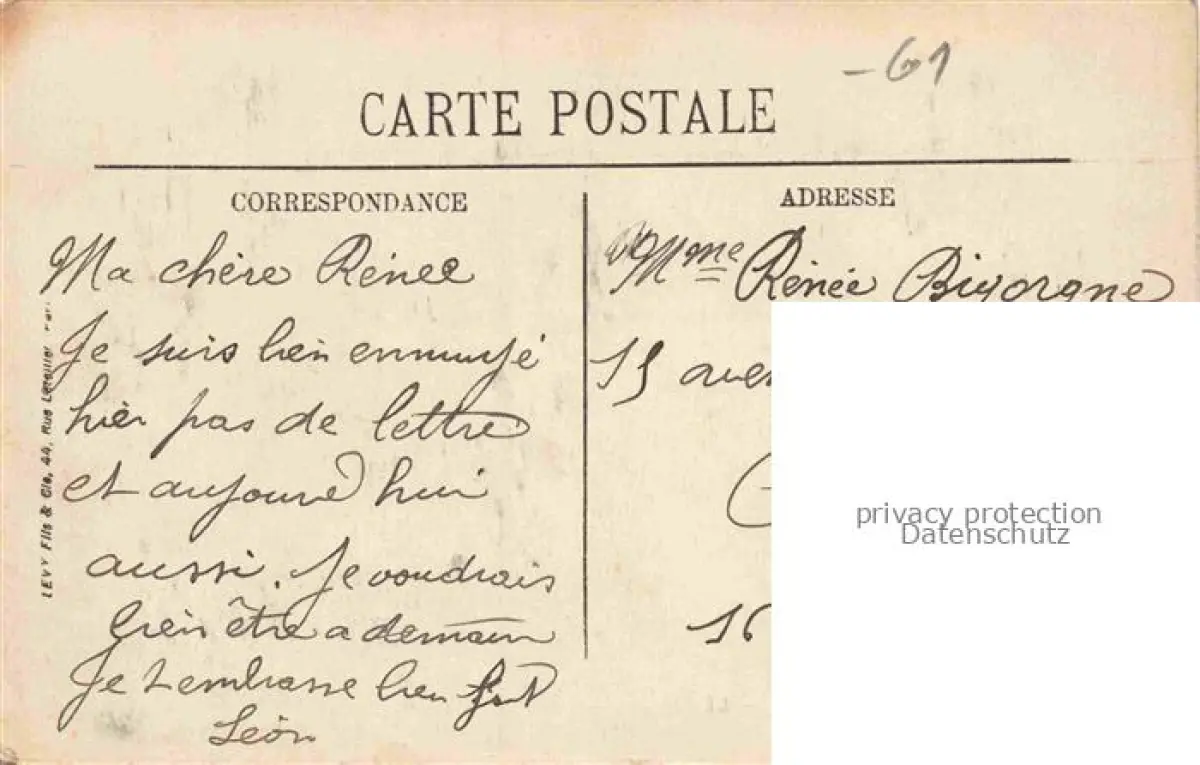 -61
CARTE POSTALE
CORRESPONDANCE
ADRESSE
Ma chère Rénee
Je suis bien ennuyé
hier pas de lettre
et aujourd'hui
aussi. Je voudrais
bien être a demain
Je t'embrasse bien fort
Léon
Mme Rénée Bivorgne
15 aven
16
LEVY Fils & Cie, 44, Rue Letellier
privacy protection
Datenschutz